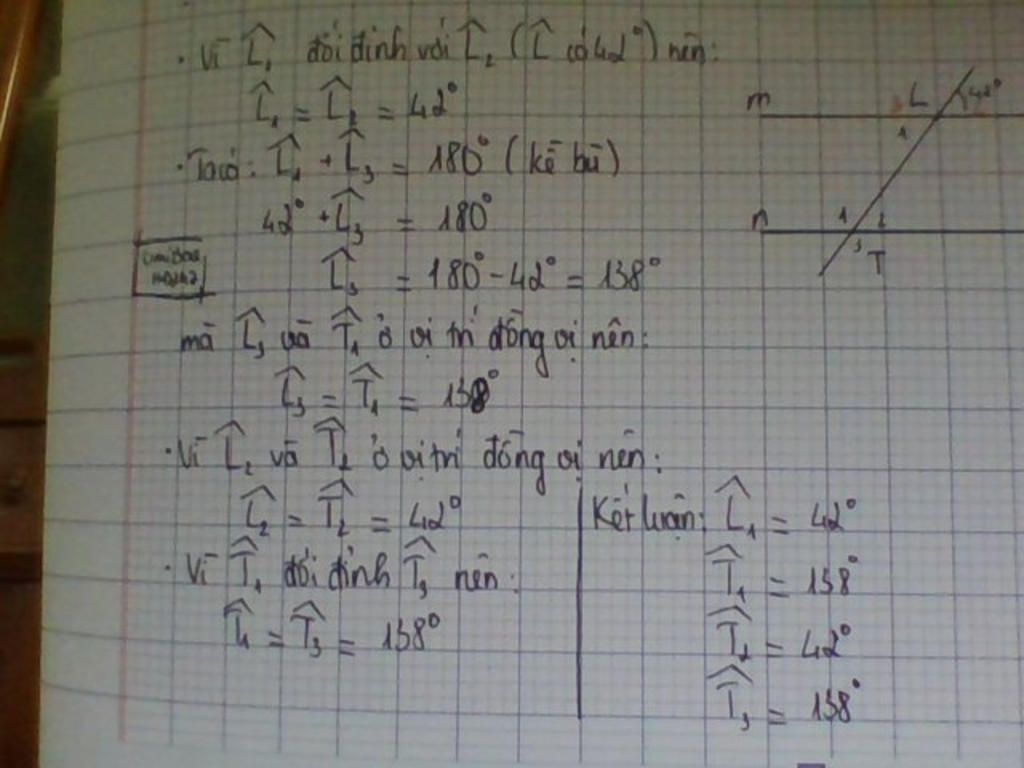 . Vì L̂₁ đối đỉnh với L̂₂ (L̂ có 42°) nên:
L̂₁ = L̂₂ = 42°
. Ta có: L̂₁ + L̂₃ = 180° (kề bù)
42° + L̂₃ = 180°
L̂₃ = 180° - 42° = 138°
mà L̂₃ và T̂₁ ở vị trí đồng vị nên:
L̂₃ = T̂₁ = 138°
. Vì L̂₂ và T̂₂ ở vị trí đồng vị nên:
L̂₂ = T̂₂ = 42°
. Vì T̂₁ đối đỉnh T̂₃ nên:
T̂₁ = T̂₃ = 138°
Kết luận: L̂₁ = 42°
T̂₁ = 138°
T̂₂ = 42°
T̂₃ = 138°
m L 42°
1
n 1 2
3 T